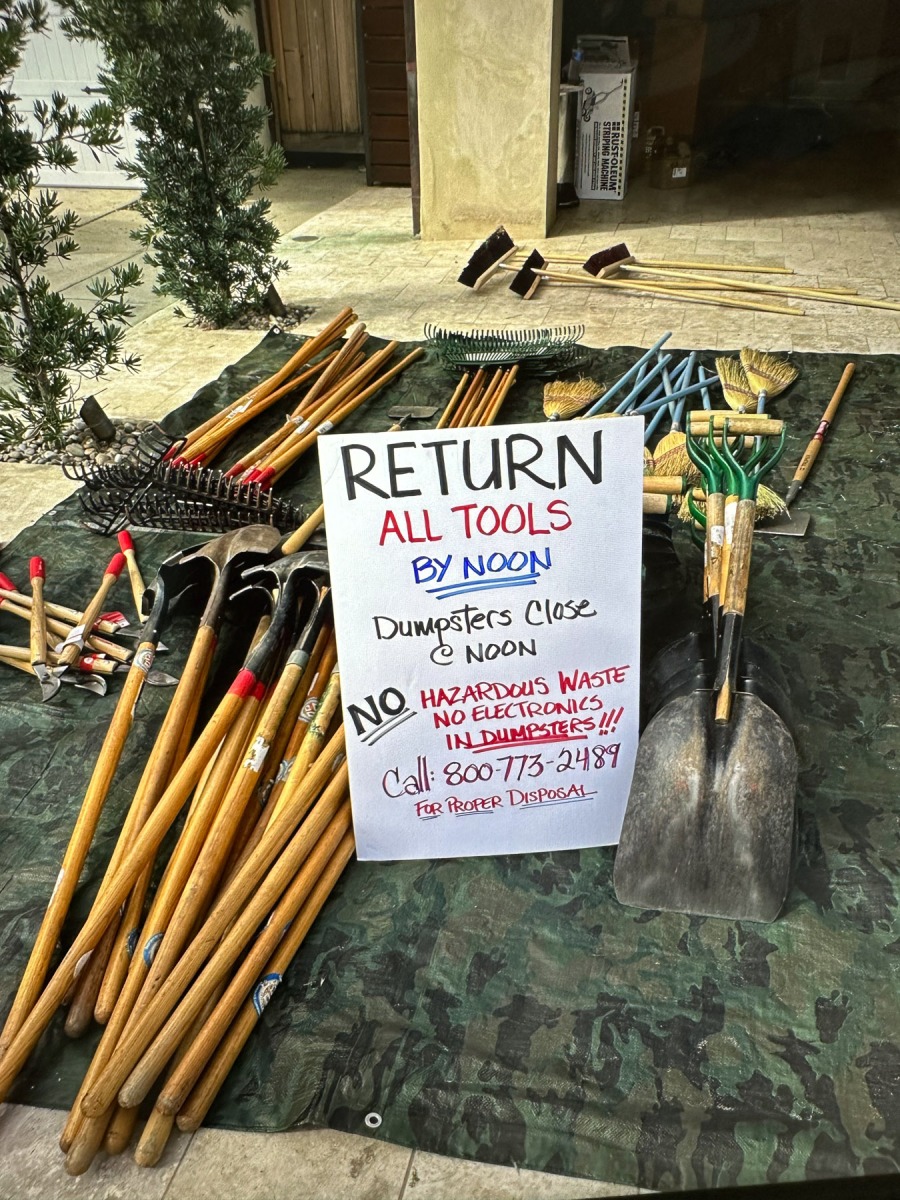 RUST-OLEUM
STRIPING MACHINE
RETURN
ALL TOOLS
BY NOON
Dumpsters Close
@ NOON
NO HAZARDOUS WASTE
NO ELECTRONICS
IN DUMPSTERS!!!
Call: 800-773-2489
FOR PROPER DISPOSAL